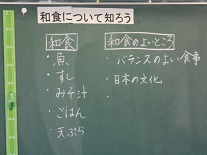 和食について知ろう
和食
・魚
・すし
・みそ汁
・ごはん
・天ぷら
和食のよいところ
・バランスのよい食事
・日本の文化
・